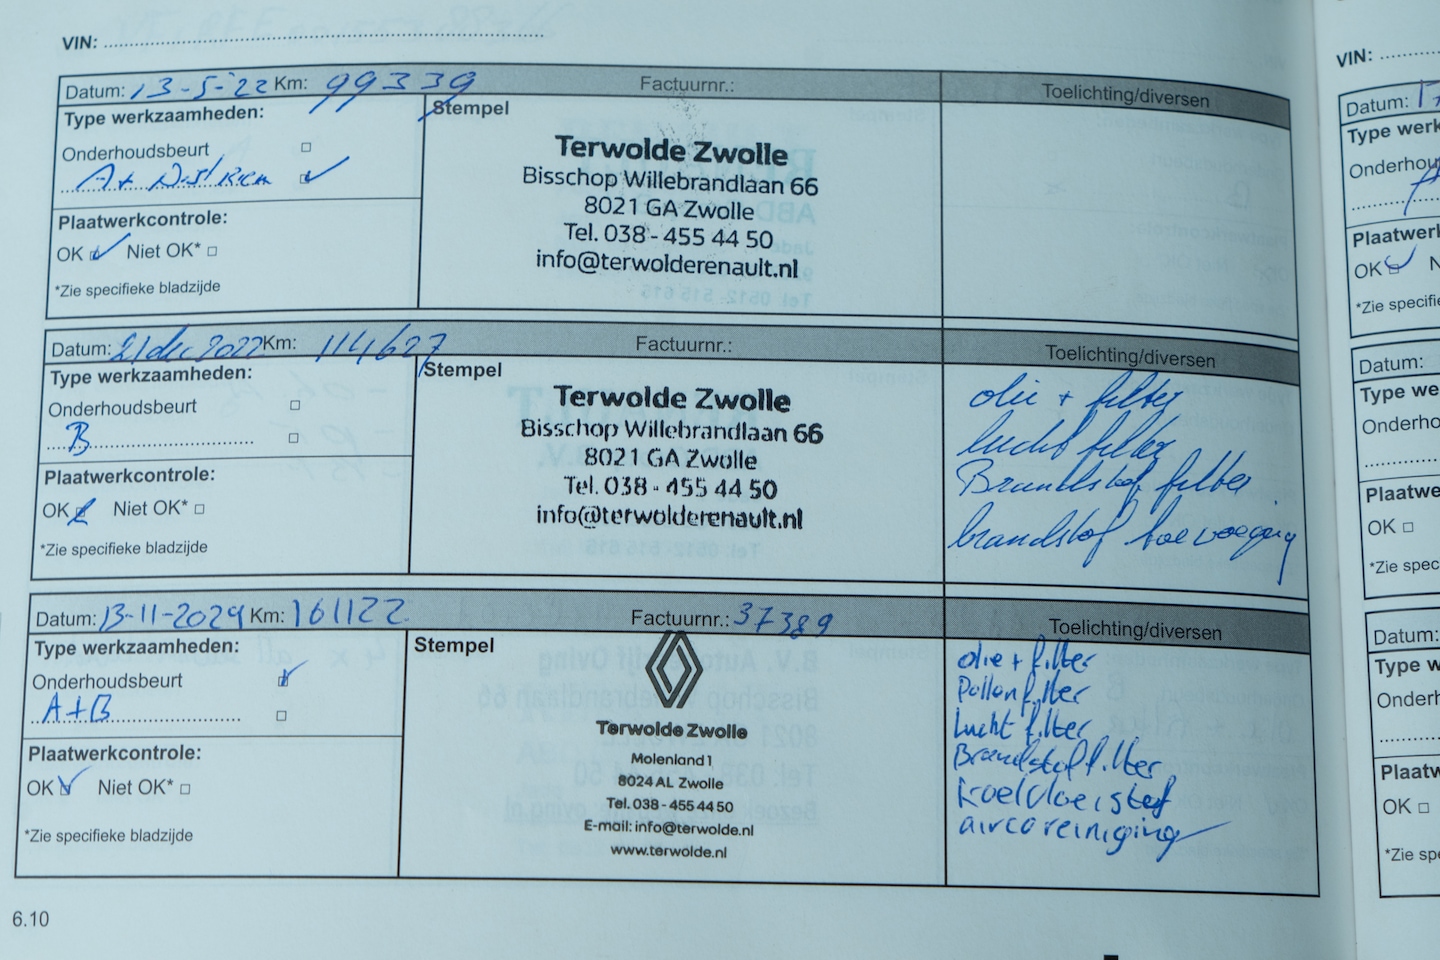 VIN:
Datum: 13-5-'22 Km: 99339 Factuurnr.: Toelichting/diversen
Type werkzaamheden: Stempel
Onderhoudsbeurt
A+ Dist Riem
Plaatwerkcontrole:
OK Niet OK*
*Zie specifieke bladzijde
Terwolde Zwolle
Bisschop Willebrandlaan 66
8021 GA Zwolle
Tel. 038 - 455 44 50
info@terwolderenault.nl
Datum: 21 dec 2022 Km: 114627 Factuurnr.: Toelichting/diversen
Type werkzaamheden: Stempel
Onderhoudsbeurt
B
Plaatwerkcontrole:
OK Niet OK*
*Zie specifieke bladzijde
Terwolde Zwolle
Bisschop Willebrandlaan 66
8021 GA Zwolle
Tel. 038 - 455 44 50
info@terwolderenault.nl
olie + filter
lucht filter
Brandstof filter
brandstof toevoeging
Datum: 13-11-2024 Km: 161122 Factuurnr.: 37389 Toelichting/diversen
Type werkzaamheden: Stempel
Onderhoudsbeurt
A+B
Plaatwerkcontrole:
OK Niet OK*
*Zie specifieke bladzijde
Terwolde Zwolle
Molenland 1
8024 AL Zwolle
Tel. 038 - 455 44 50
E-mail: info@terwolde.nl
www.terwolde.nl
olie + filter
Pollenfilter
Lucht filter
Brandstoffilter
koelvloeistof
aircoreiniging
6.10
VIN:
Datum: 17
Type werk
Onderhou
Plaatwerk
OK
*Zie specifi
Datum:
Type we
Onderho
Plaatwe
OK
*Zie spec
Datum:
Type w
Onderh
Plaatw
OK
*Zie spe